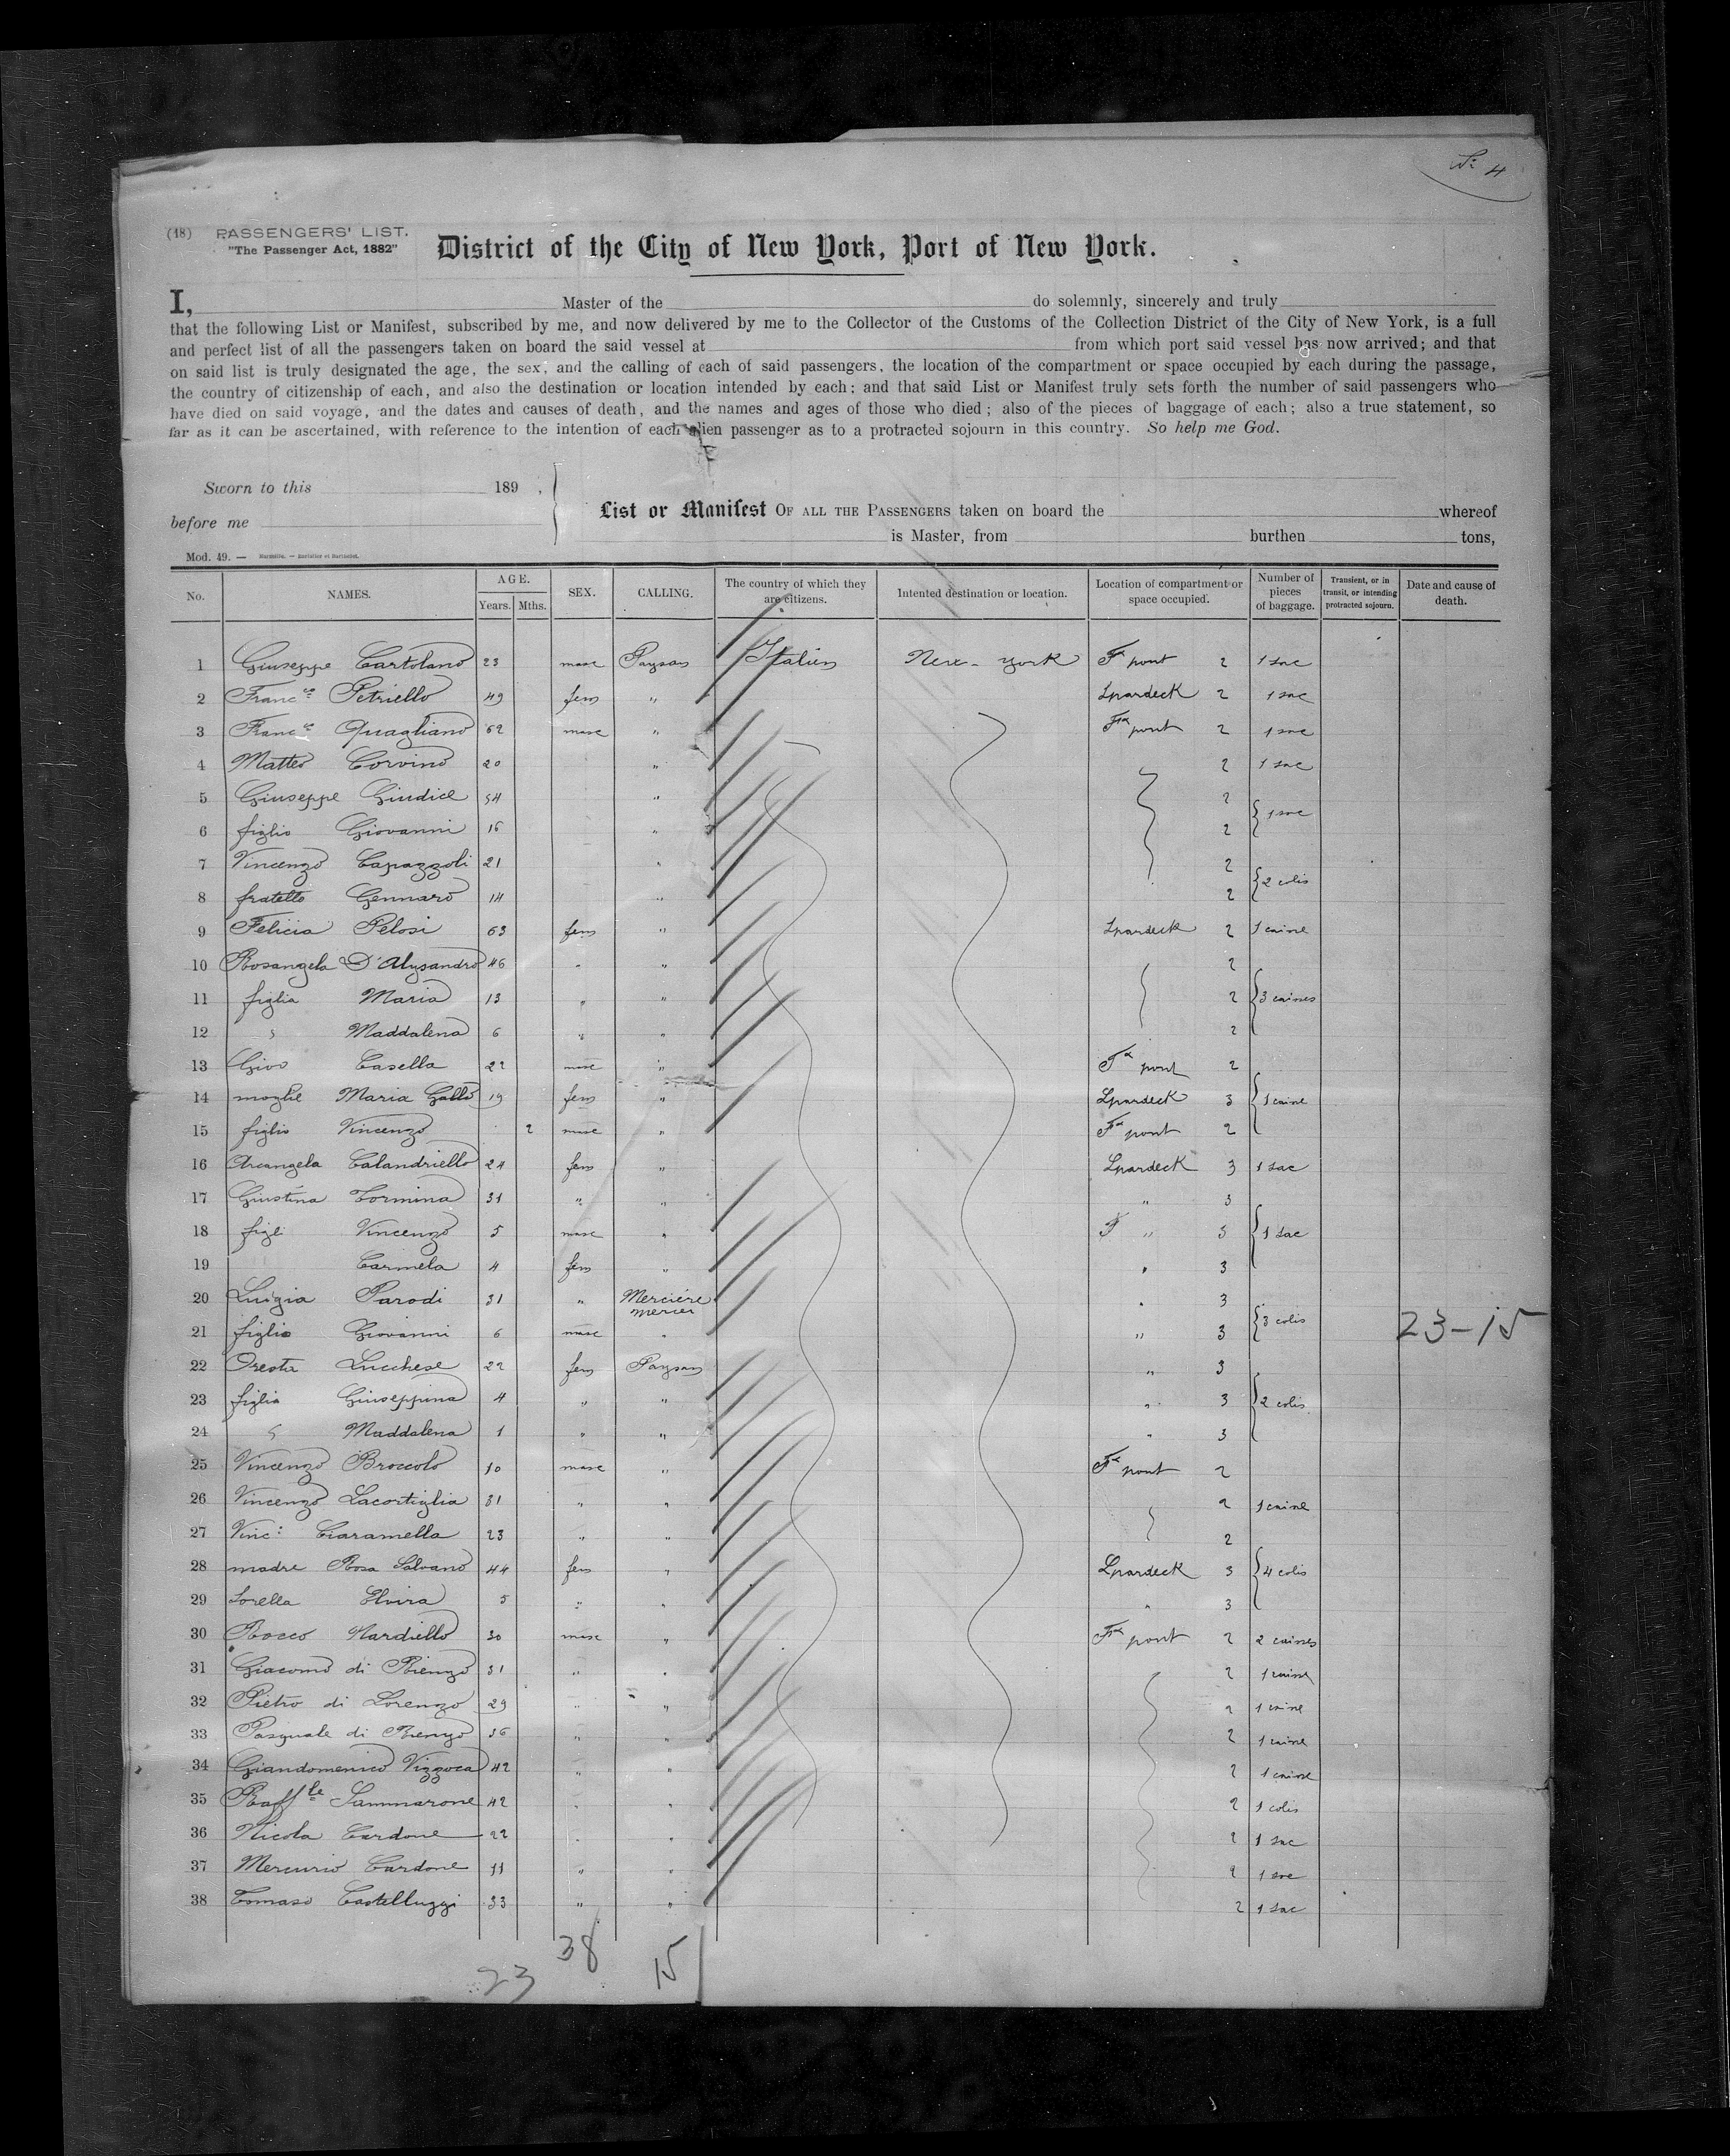 No 4
(18) PASSENGERS' LIST.
"The Passenger Act, 1882"
District of the City of New York, Port of New York.
I, Master of the do solemnly, sincerely and truly
that the following List or Manifest, subscribed by me, and now delivered by me to the Collector of the Customs of the Collection District of the City of New York, is a full
and perfect list of all the passengers taken on board the said vessel at from which port said vessel has now arrived; and that
on said list is truly designated the age, the sex, and the calling of each of said passengers, the location of the compartment or space occupied by each during the passage,
the country of citizenship of each, and also the destination or location intended by each; and that said List or Manifest truly sets forth the number of said passengers who
have died on said voyage, and the dates and causes of death, and the names and ages of those who died; also of the pieces of baggage of each; also a true statement, so
far as it can be ascertained, with reference to the intention of each alien passenger as to a protracted sojourn in this country. So help me God.
Sworn to this 189 ,
before me
List or Manifest OF ALL THE PASSENGERS taken on board the whereof
is Master, from burthen tons,
Mod. 49. —
No. NAMES. AGE. Years. Mths. SEX. CALLING. The country of which they are citizens. Intented destination or location. Location of compartment or space occupied. Number of pieces of baggage. Transient, or in transit, or intending protracted sojourn. Date and cause of death.
1 Giuseppe Cartolano 23 masc Paysan Italien New-york Ft pont 2 1 sac
2 Francca Petriello 49 fem " Spardeck 2 1 sac
3 Francco Quagliano 62 masc " Ft pont 2 1 sac
4 Matteo Corvino 20 " 2 1 sac
5 Giuseppe Giudice 54 " 2
6 figlio Giovanni 16 " 2 1 sac
7 Vincenzo Capazzoli 21 " 2
8 fratello Gennaro 14 " 2 2 colis
9 Felicia Pelosi 63 fem " Spardeck 2 1 caisse
10 Rosangela D'Alysandro 46 " " 2
11 figlia Maria 13 " " 2 3 caisses
12 " Maddalena 6 " " 2
13 Giov Casella 22 masc " Ft pont 2
14 moglie Maria Gallo 19 fem " Spardeck 3 1 caisse
15 figlio Vincenzo 2 masc " Ft pont 2
16 Arcangela Calandriello 24 fem " Spardeck 3 1 sac
17 Giustina Tormina 31 " " " 3
18 figli Vincenzo 5 masc " " 3 1 sac
19 Carmela 4 fem " " 3
20 Luigia Parodi 31 " Mercière " 3
mercier
21 figlio Giovanni 6 masc " " 3 3 colis
23-15
22 Oresta Lucchese 22 fem Paysan " 3
23 figlia Giuseppina 4 " " " 3 2 colis
24 " Maddalena 1 " " " 3
25 Vincenzo Broccolo 30 masc " Ft pont 2
26 Vincenzo Lacortiglia 31 " " 2 1 caisse
27 Vinc: Ciaramella 23 " " 2
28 madre Rosa Salvano 44 fem " Spardeck 3 4 colis
29 Sorella Elvira 5 " " " 3
30 Rocco Nardiello 30 masc " Ft pont 2 2 caisses
31 Giacomo di Rienzo 31 " " 2 1 caisse
32 Pietro di Lorenzo 29 " " 2 1 caisse
33 Pasquale di Rienzo 36 " " 2 1 caisse
34 Giandomenico Vizzoca 42 " " 2 1 caisse
35 Raffle Sammarone 42 " " 2 1 colis
36 Nicola Cardone 22 " " 2 1 sac
37 Mercurio Cardone 11 " " 2 1 sac
38 Tomaso Castelluzzi 33 " " 2 1 sac
38
23 15